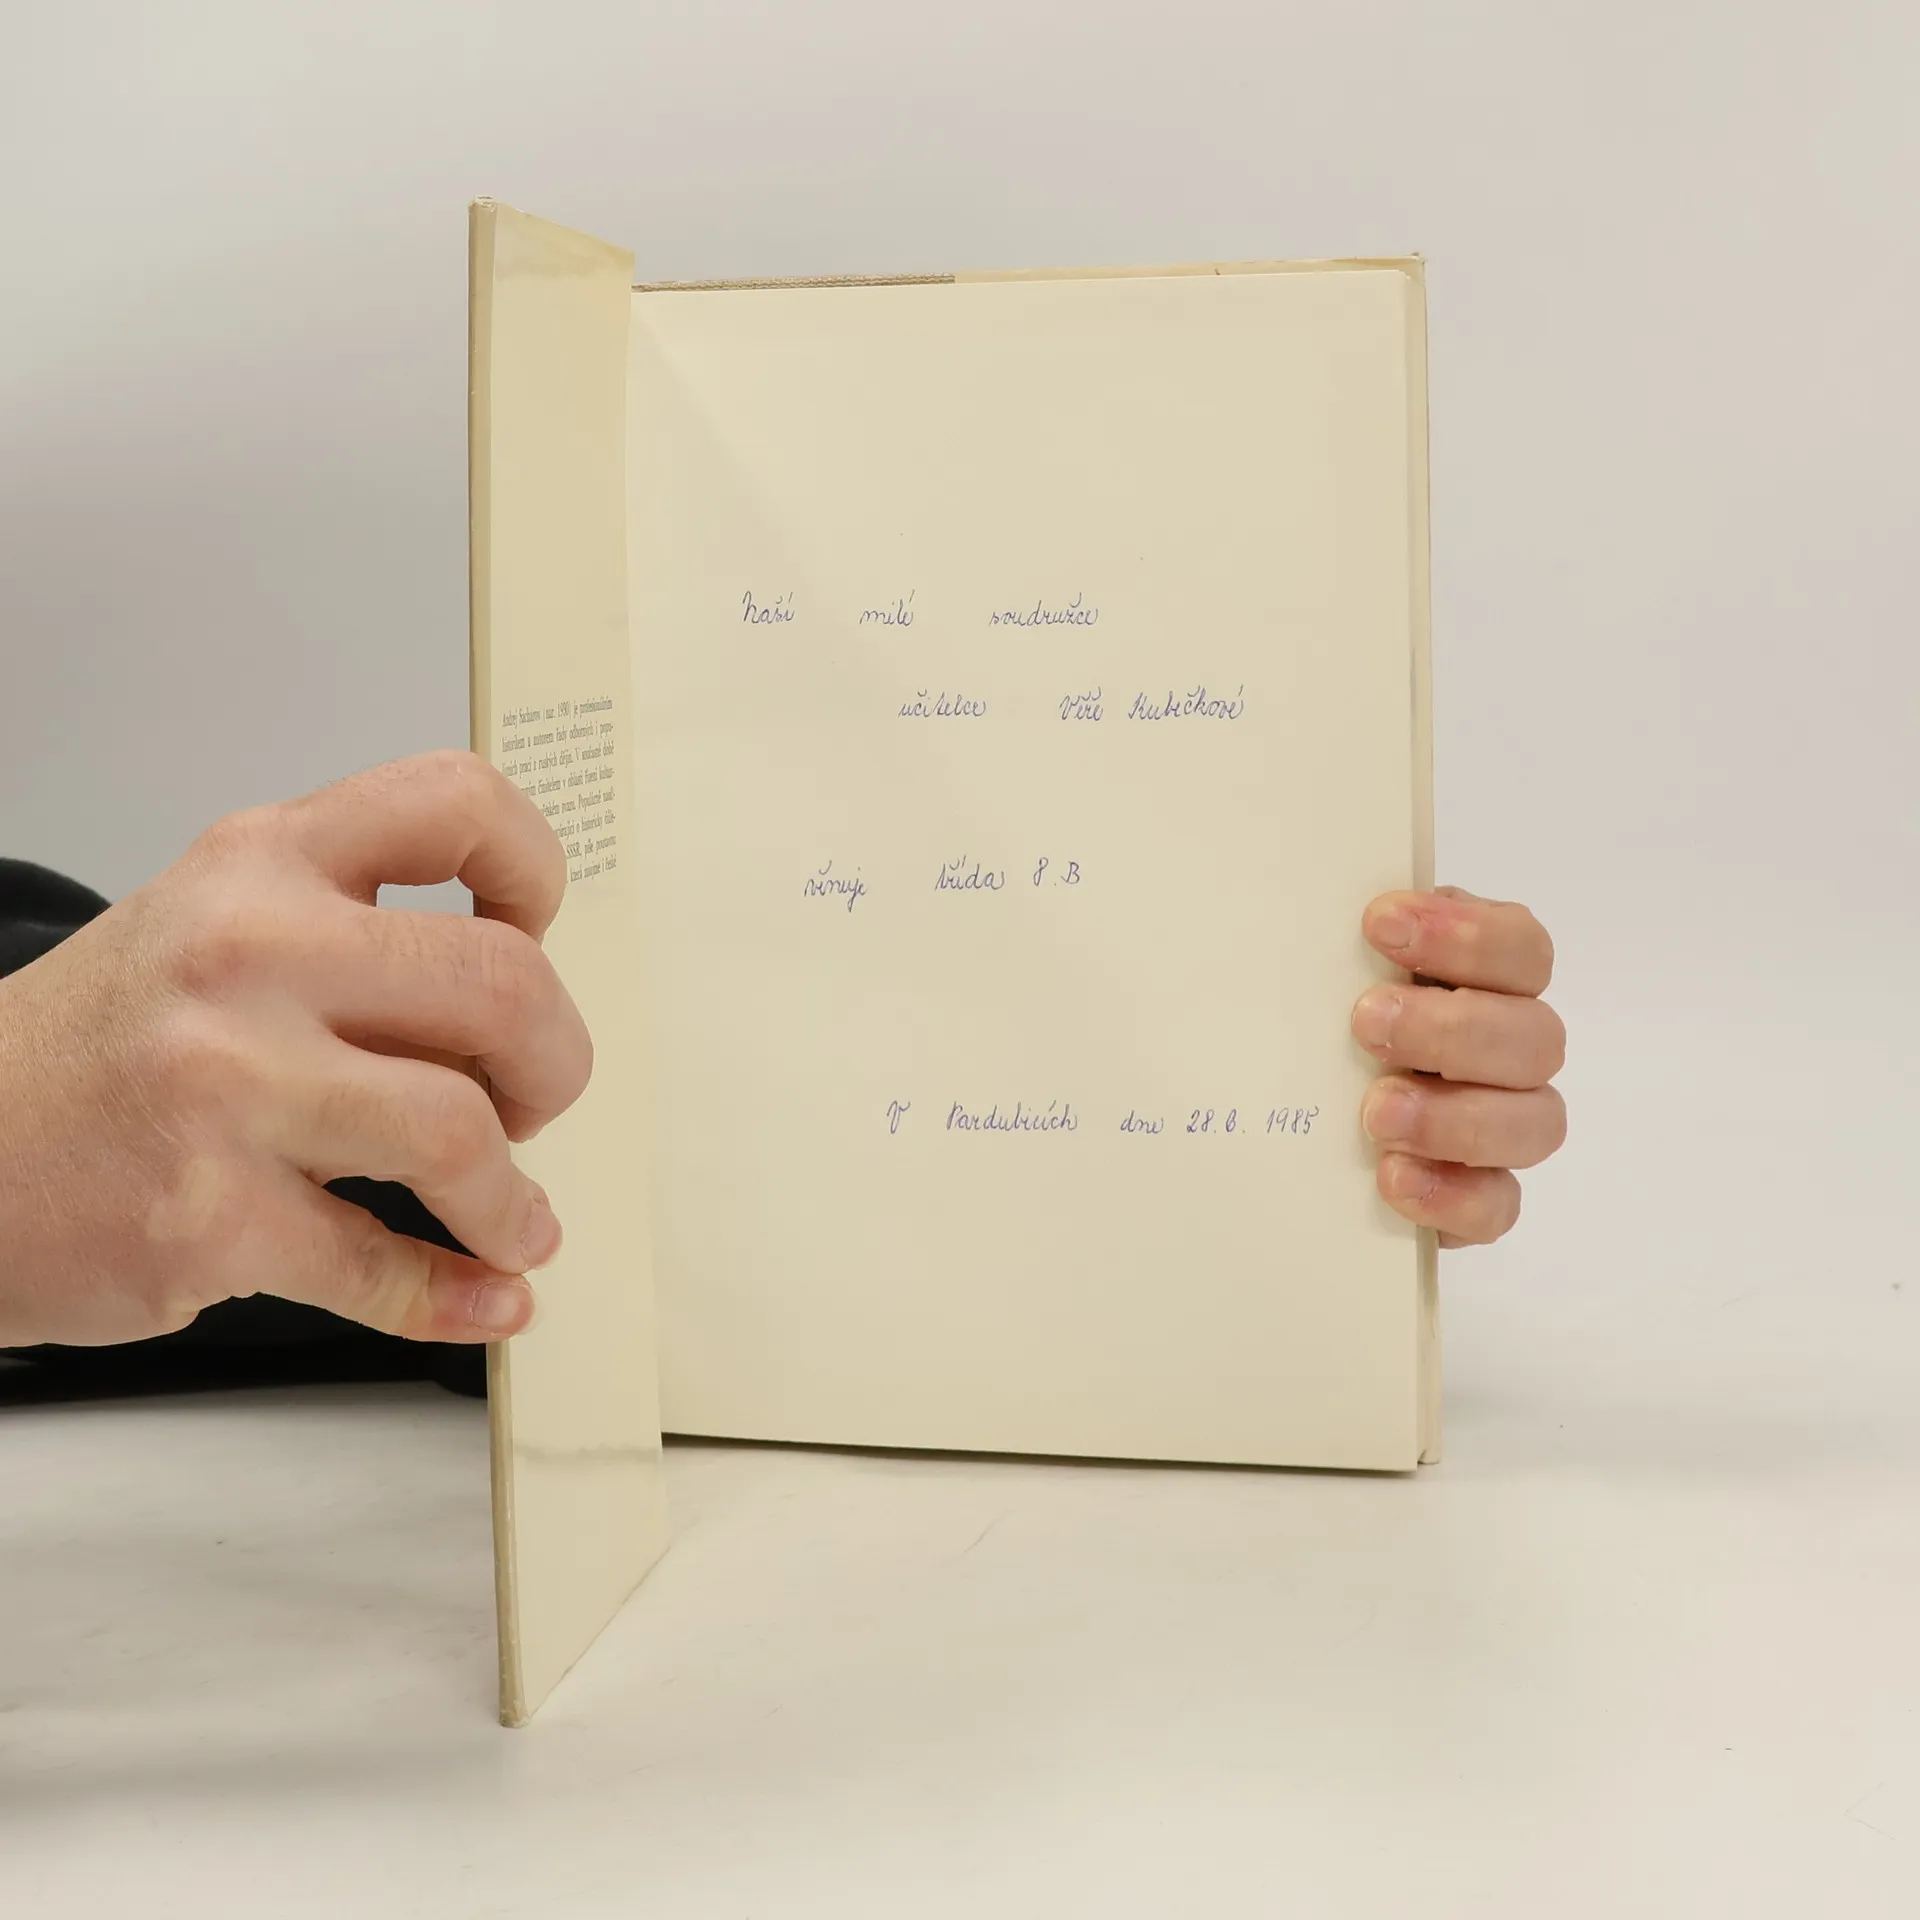 Andrej Sacharov (nar. 1930) je profesionálním
historikem a autorem řady odborných i popu-
lárních prací z ruských dějin. V současné době
činitelem v oblasti řízení kultur-
svazu. Populárně nauč-
o historicky
SSSR, píše poutavou
která zaujme i české
Naší milé soudružce
učitelce Věře Kubíčkové
věnuje třída 8.B
V Pardubicích dne 28.6. 1985